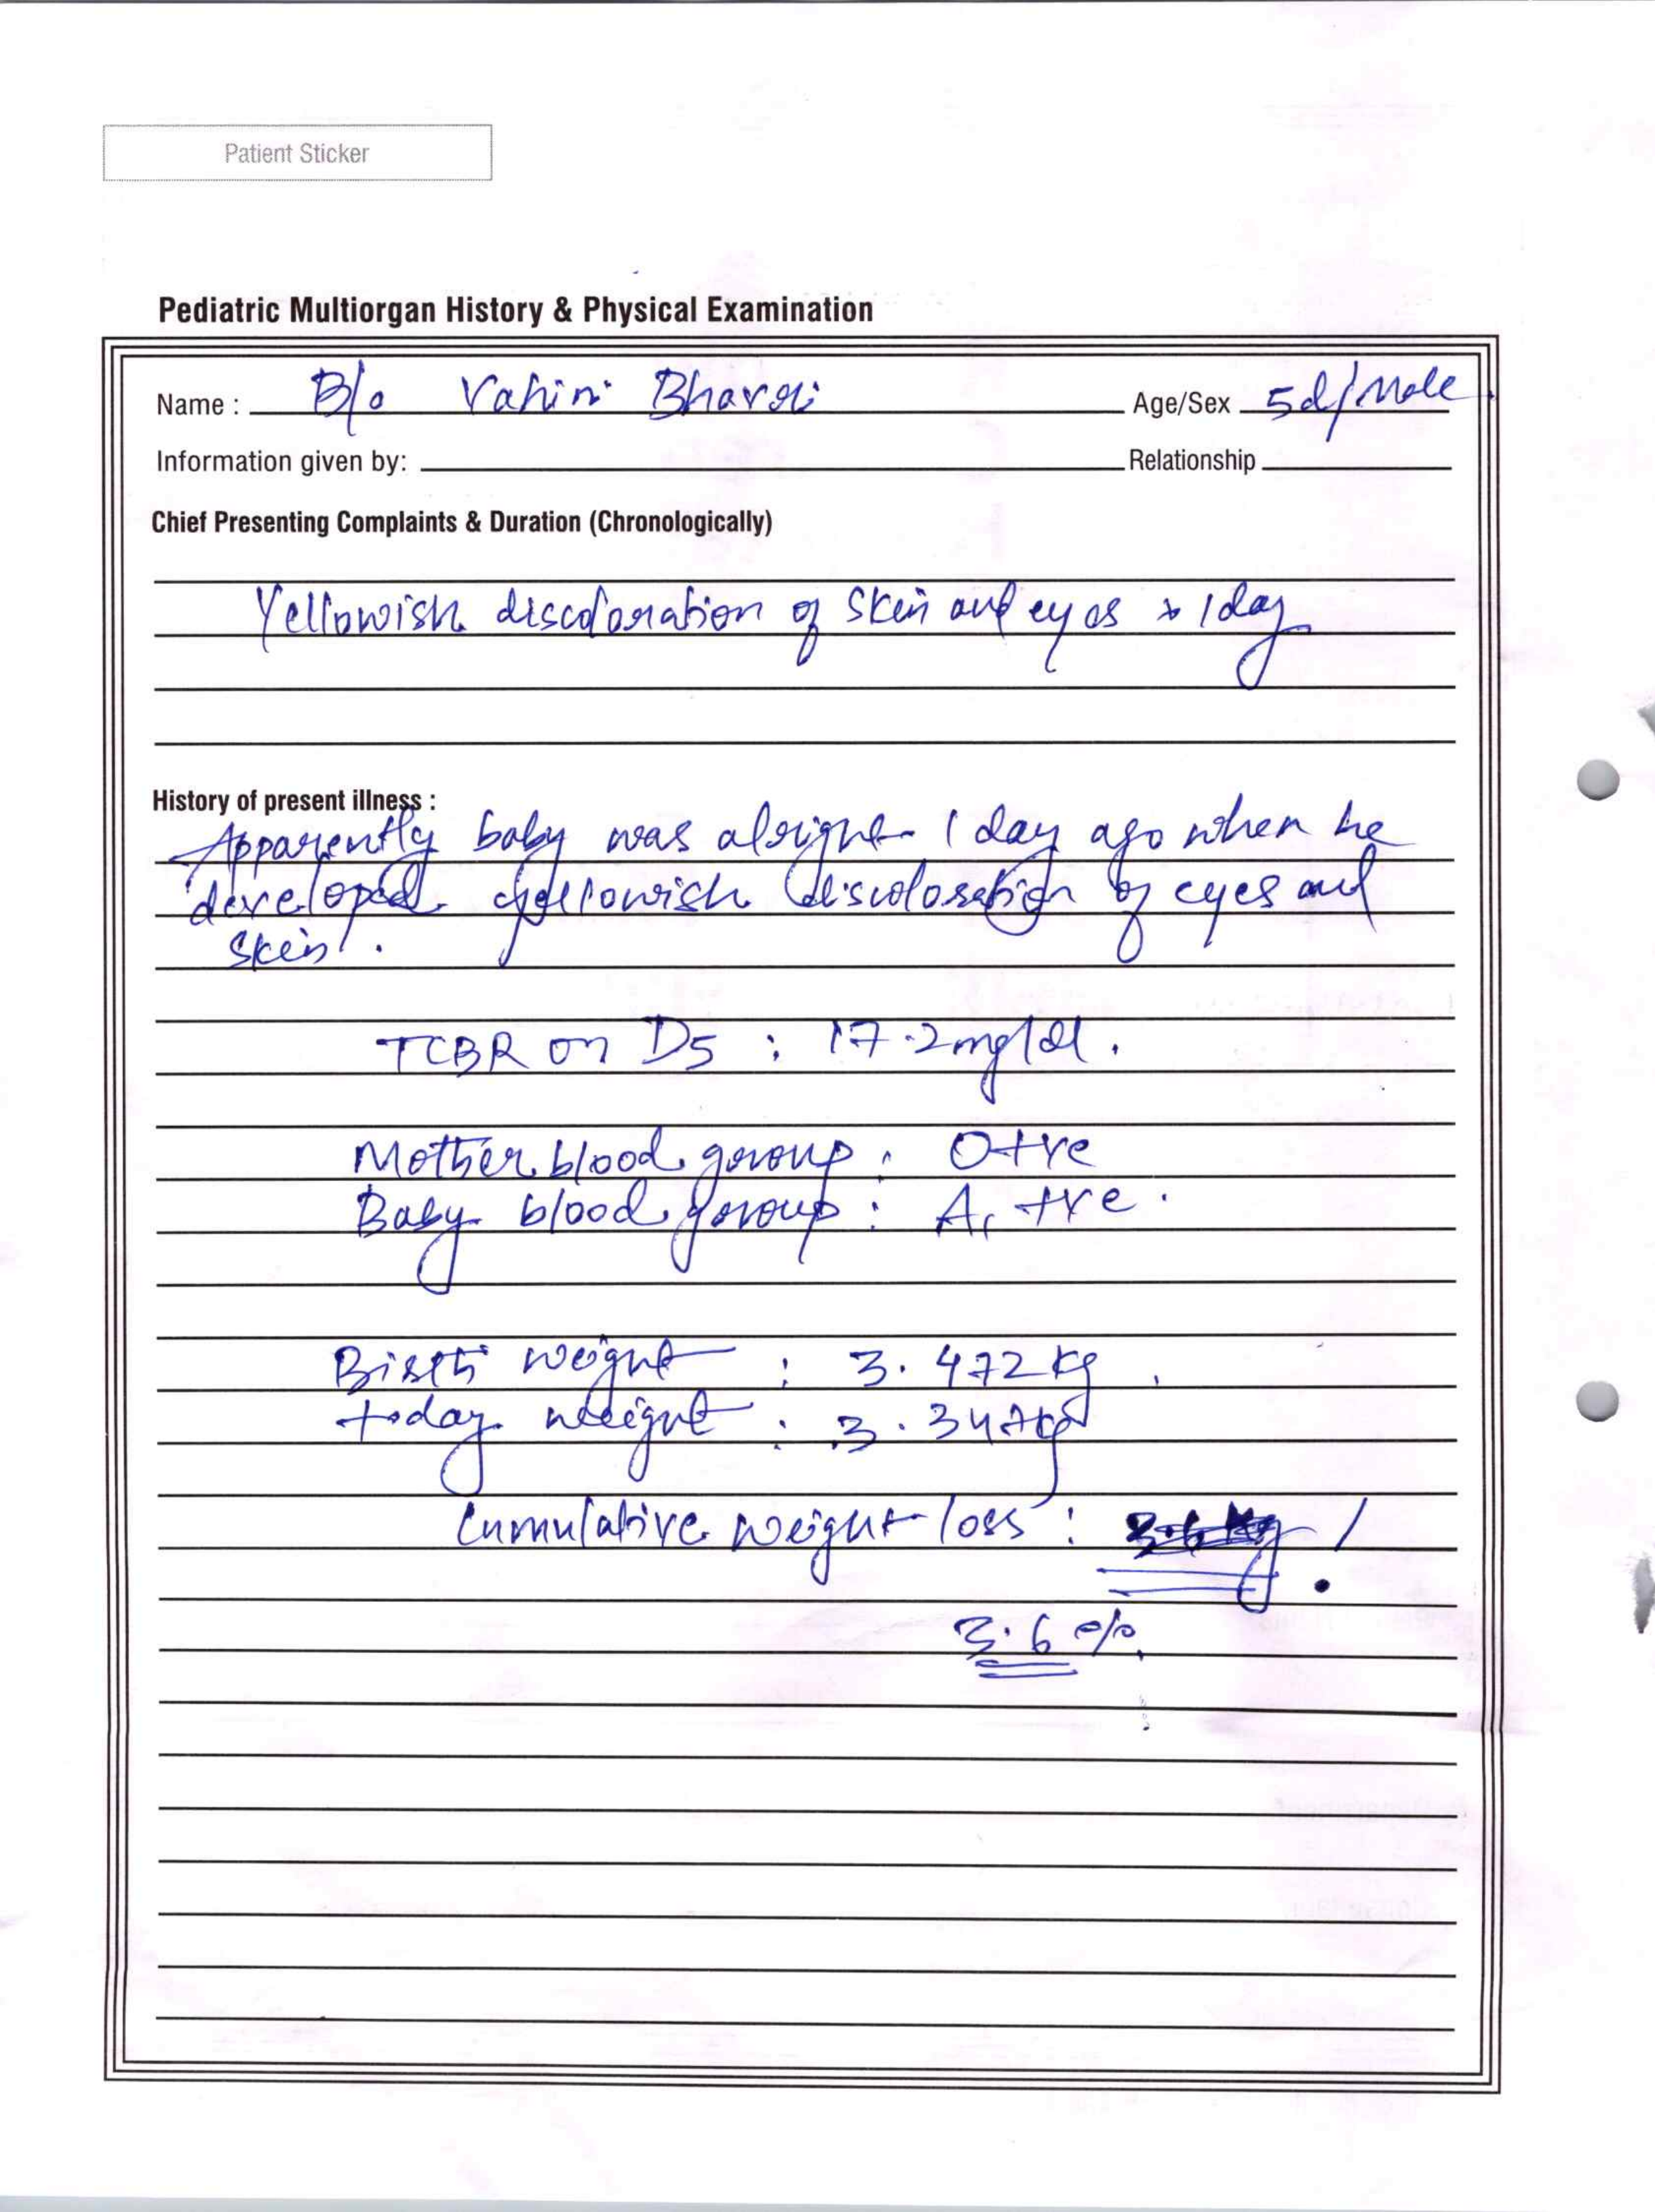 Patient Sticker
Pediatric Multiorgan History & Physical Examination
Name : B/o Vahini Bharati Age/Sex 5d/Male
Information given by: Relationship
Chief Presenting Complaints & Duration (Chronologically)
Yellowish discoloration of skin and eyes x 1day
History of present illness :
Apparently baby was alright 1 day ago when he
developed yellowish discoloration of eyes and
skin.
TCBR on D5 : 17.2mg/dl.
Mother blood group : O+ve
Baby blood group : A1 +ve.
Birth weight : 3.472kg
today weight : 3.347kg
Cumulative weight loss :
3.6 %